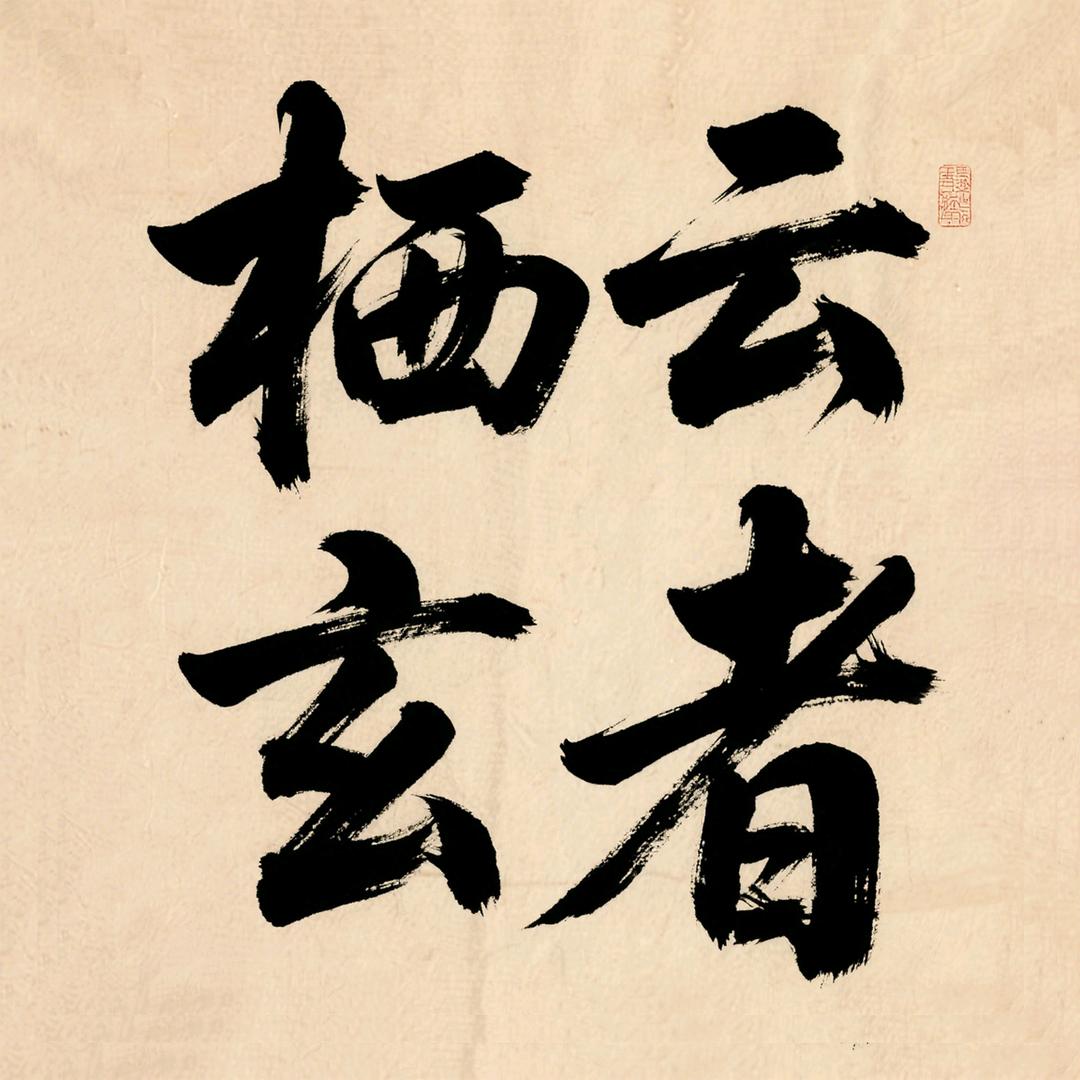 云者
栖玄